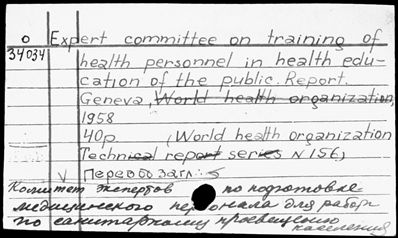 o Expert committee on training of
34034 health personnel in health edu-
cation of the public. Report.
Geneva, World health organization,
1958
40p. (World health organization
Technical report series N 156)
V Перед загл.: 
Комитет экспертов по подготовке
медицинского персонала для работ
по санитарному просвещению
населения